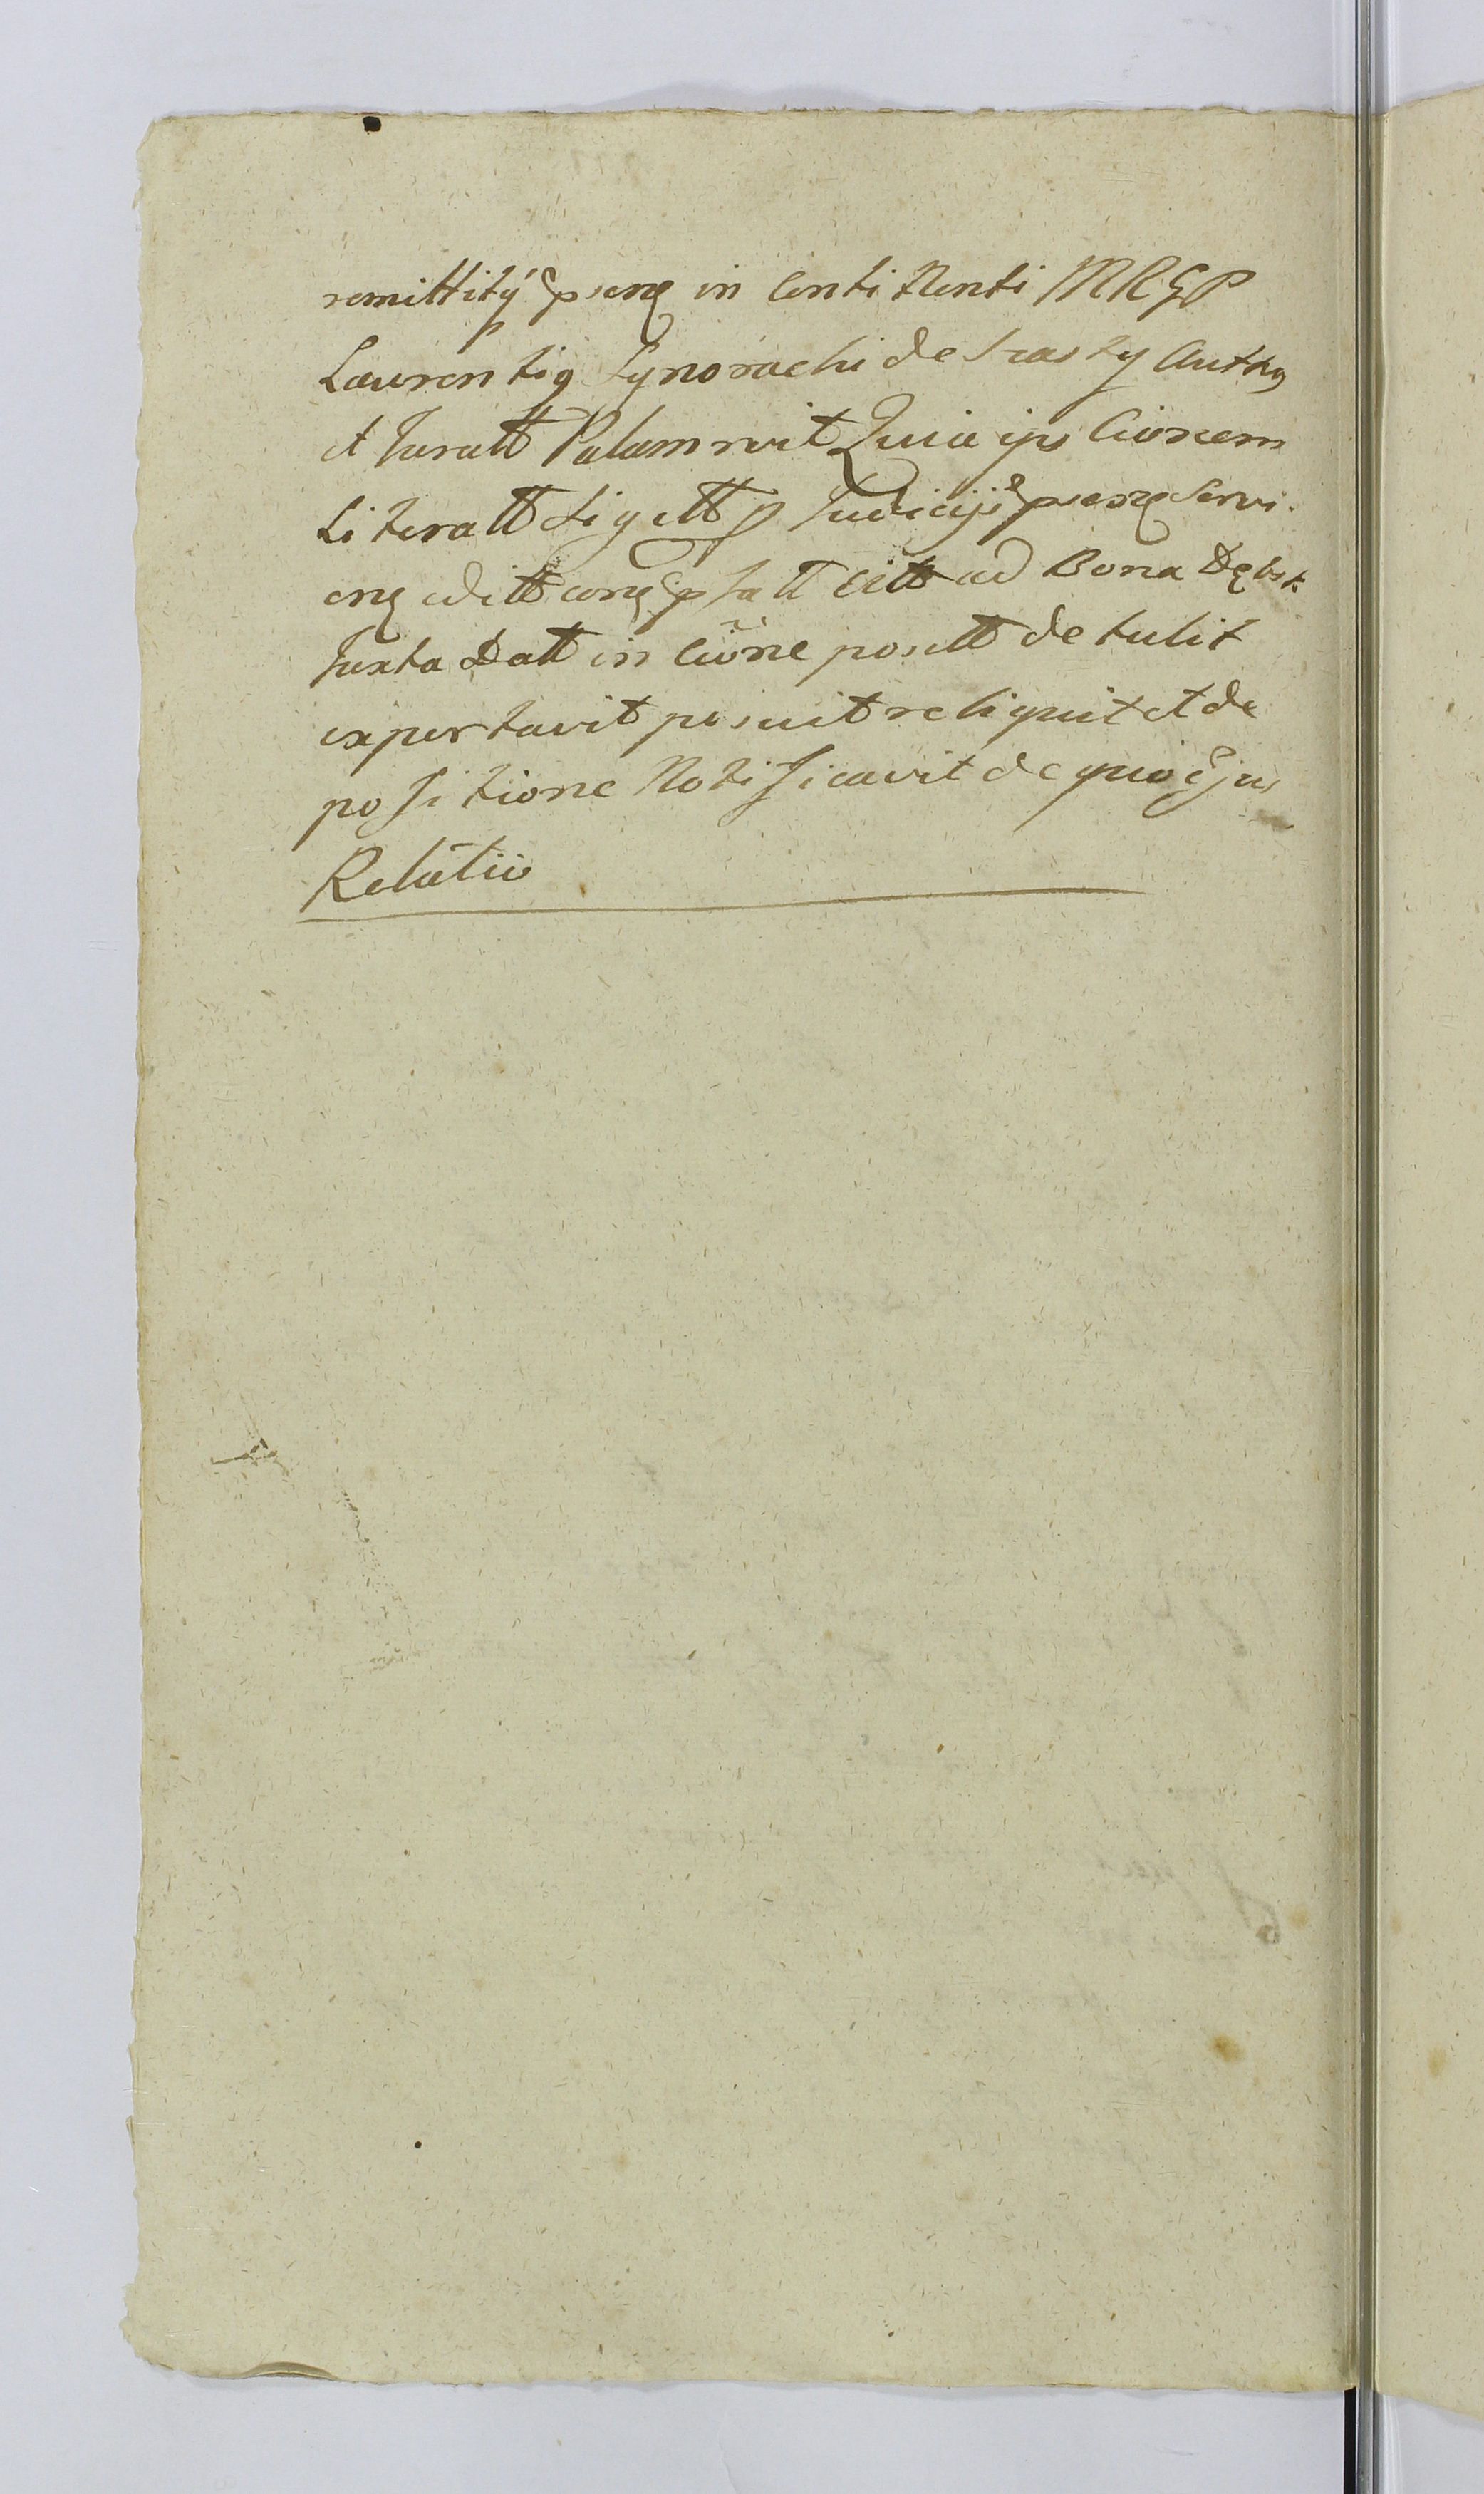 remittitý psens in Conti Nenti MRGP
Laurentig Synorachi de Auths
et Juratt Palam rvit Quia ips Cionem
Literatt Sigtt p Judicÿs psens Servi.
ens editt cons p Citt ad Bona Dębsk
Juxta Datt in Cione positt de tulit
exportavit posuit reliquit et de
positione Notificavit de quo Ejus
Relatio